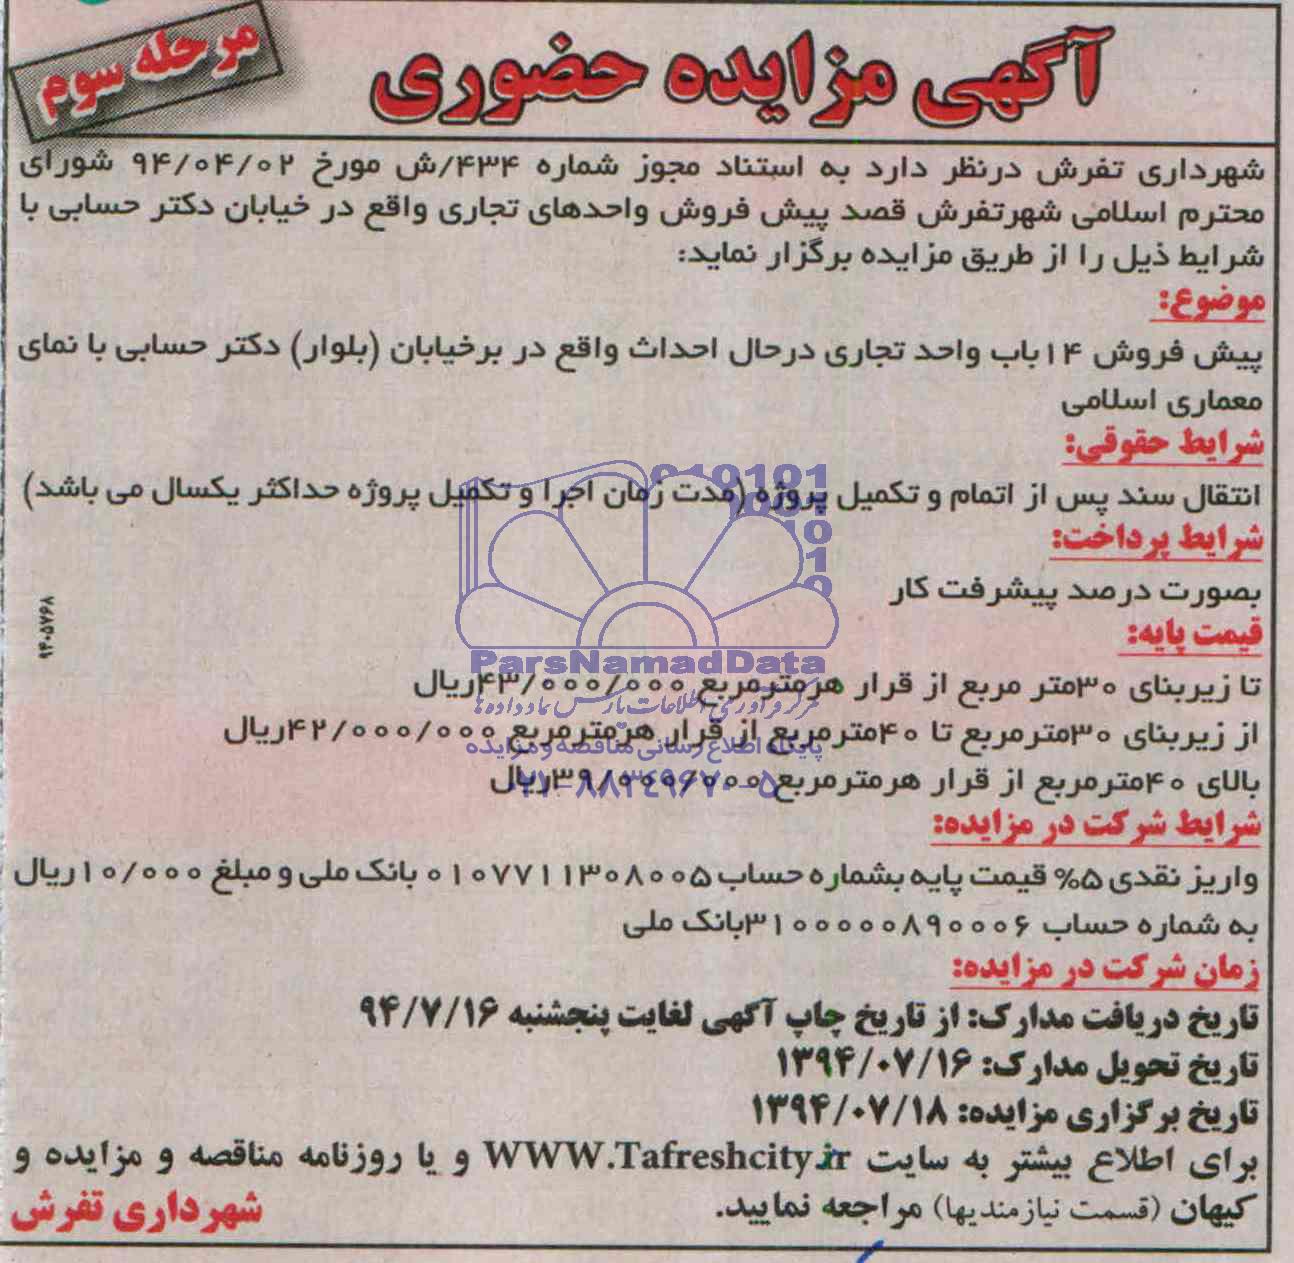 آگهی مزایده حضوری
مرحله سوم
شهرداری تفرش درنظر دارد به استناد مجوز شماره ۴۳۴/ش مورخ ۹۴/۰۴/۰۲ شورای
محترم اسلامی شهرتفرش قصد پیش فروش واحدهای تجاری واقع در خیابان دکتر حسابی با
شرایط ذیل را از طریق مزایده برگزار نماید:
موضوع:
پیش فروش ۱۴باب واحد تجاری درحال احداث واقع در برخیابان (بلوار) دکتر حسابی با نمای
معماری اسلامی
شرایط حقوقی:
انتقال سند پس از اتمام و تکمیل پروژه (مدت زمان اجرا و تکمیل پروژه حداکثر یکسال می باشد)
شرایط پرداخت:
بصورت درصد پیشرفت کار
۹۴۰۵۷۶۸
قیمت پایه:
ParsNamadData
تا زیربنای ۳۰متر مربع از قرار هرمترمربع ۴۳/۰۰۰/۰۰۰ریال
مرکز فرآوری اطلاعات پارس نماد داده ها
از زیربنای ۳۰مترمربع تا ۴۰مترمربع از قرار هرمترمربع ۴۲/۰۰۰/۰۰۰ریال
پایگاه اطلاع رسانی مناقصه و مزایده
بالای ۴۰مترمربع از قرار هرمترمربع ۳۹/۰۰۰/۰۰۰ریال
۰۲۱-۸۸۳۴۹۶۷۰-۵
شرایط شرکت در مزایده:
واریز نقدی ۵% قیمت پایه بشماره حساب ۰۱۰۷۷۱۱۳۰۸۰۰۵ بانک ملی و مبلغ ۱۰/۰۰۰ریال
به شماره حساب ۳۱۰۰۰۰۰۸۹۰۰۰۶بانک ملی
زمان شرکت در مزایده:
تاریخ دریافت مدارک: از تاریخ چاپ آگهی لغایت پنجشنبه ۹۴/۷/۱۶
تاریخ تحویل مدارک: ۱۳۹۴/۰۷/۱۶
تاریخ برگزاری مزایده: ۱۳۹۴/۰۷/۱۸
برای اطلاع بیشتر به سایت WWW.Tafreshcity.ir و یا روزنامه مناقصه و مزایده و
کیهان (قسمت نیازمندیها) مراجعه نمایید.
شهرداری تفرش